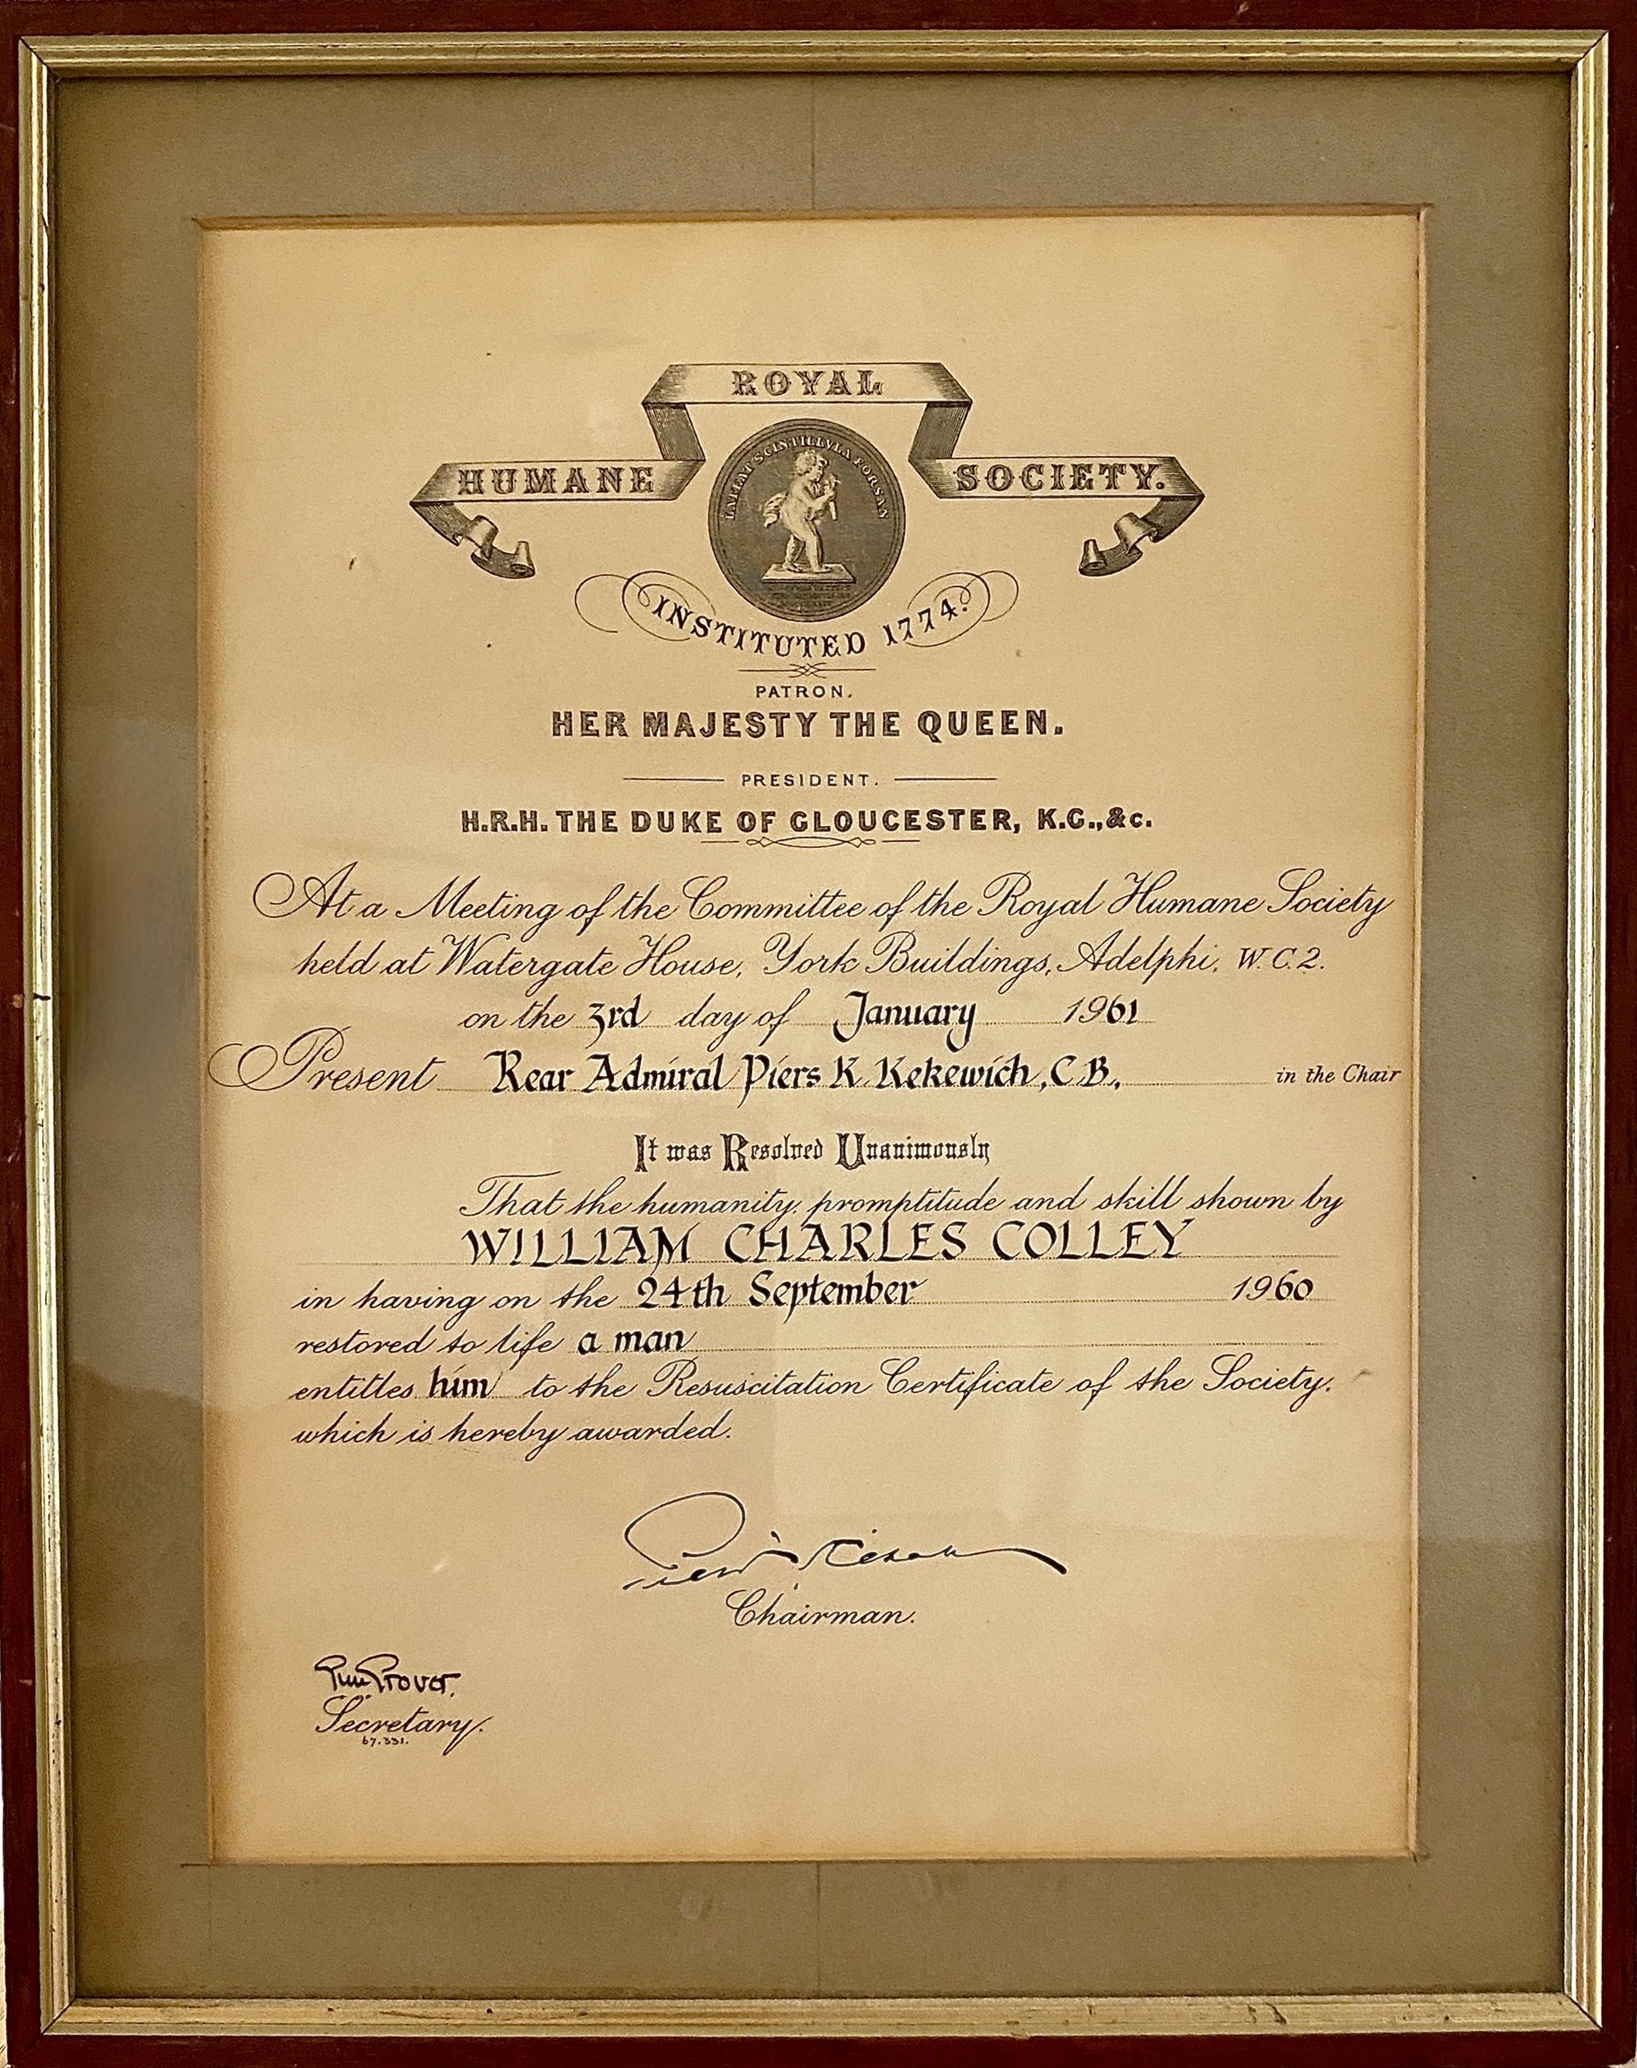 ROYAL
HUMANE SOCIETY.
LATEAT SCINTILLVLA FORSAN
INSTITUTED 1774.
PATRON.
HER MAJESTY THE QUEEN.
PRESIDENT.
H.R.H. THE DUKE OF GLOUCESTER, K.G.,&c.
At a Meeting of the Committee of the Royal Humane Society
held at Watergate House, York Buildings, Adelphi, W.C.2.
on the 3rd day of January 1961
Present Rear Admiral Piers K. Kekewich, C.B., in the Chair
It was Resolved Unanimously
That the humanity, promptitude and skill shown by
WILLIAM CHARLES COLLEY
in having on the 24th September 1960
restored to life a man
entitles him to the Resuscitation Certificate of the Society.
which is hereby awarded.
Chairman.
Secretary.
67.331.